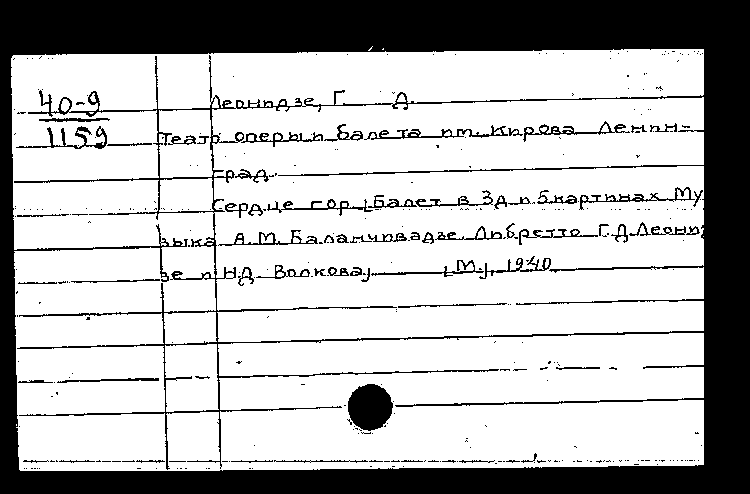 40-9
1159
Леонидзе, Г. Д.
Театр оперы и балета им. Кирова Ленин-
град.
Сердце гор [Балет в 3д и 5 картинах Му
зыка А.М. Баланчивадзе Либретто Г.Д.Леонид
зе и НД Волкова] [М.], 1940